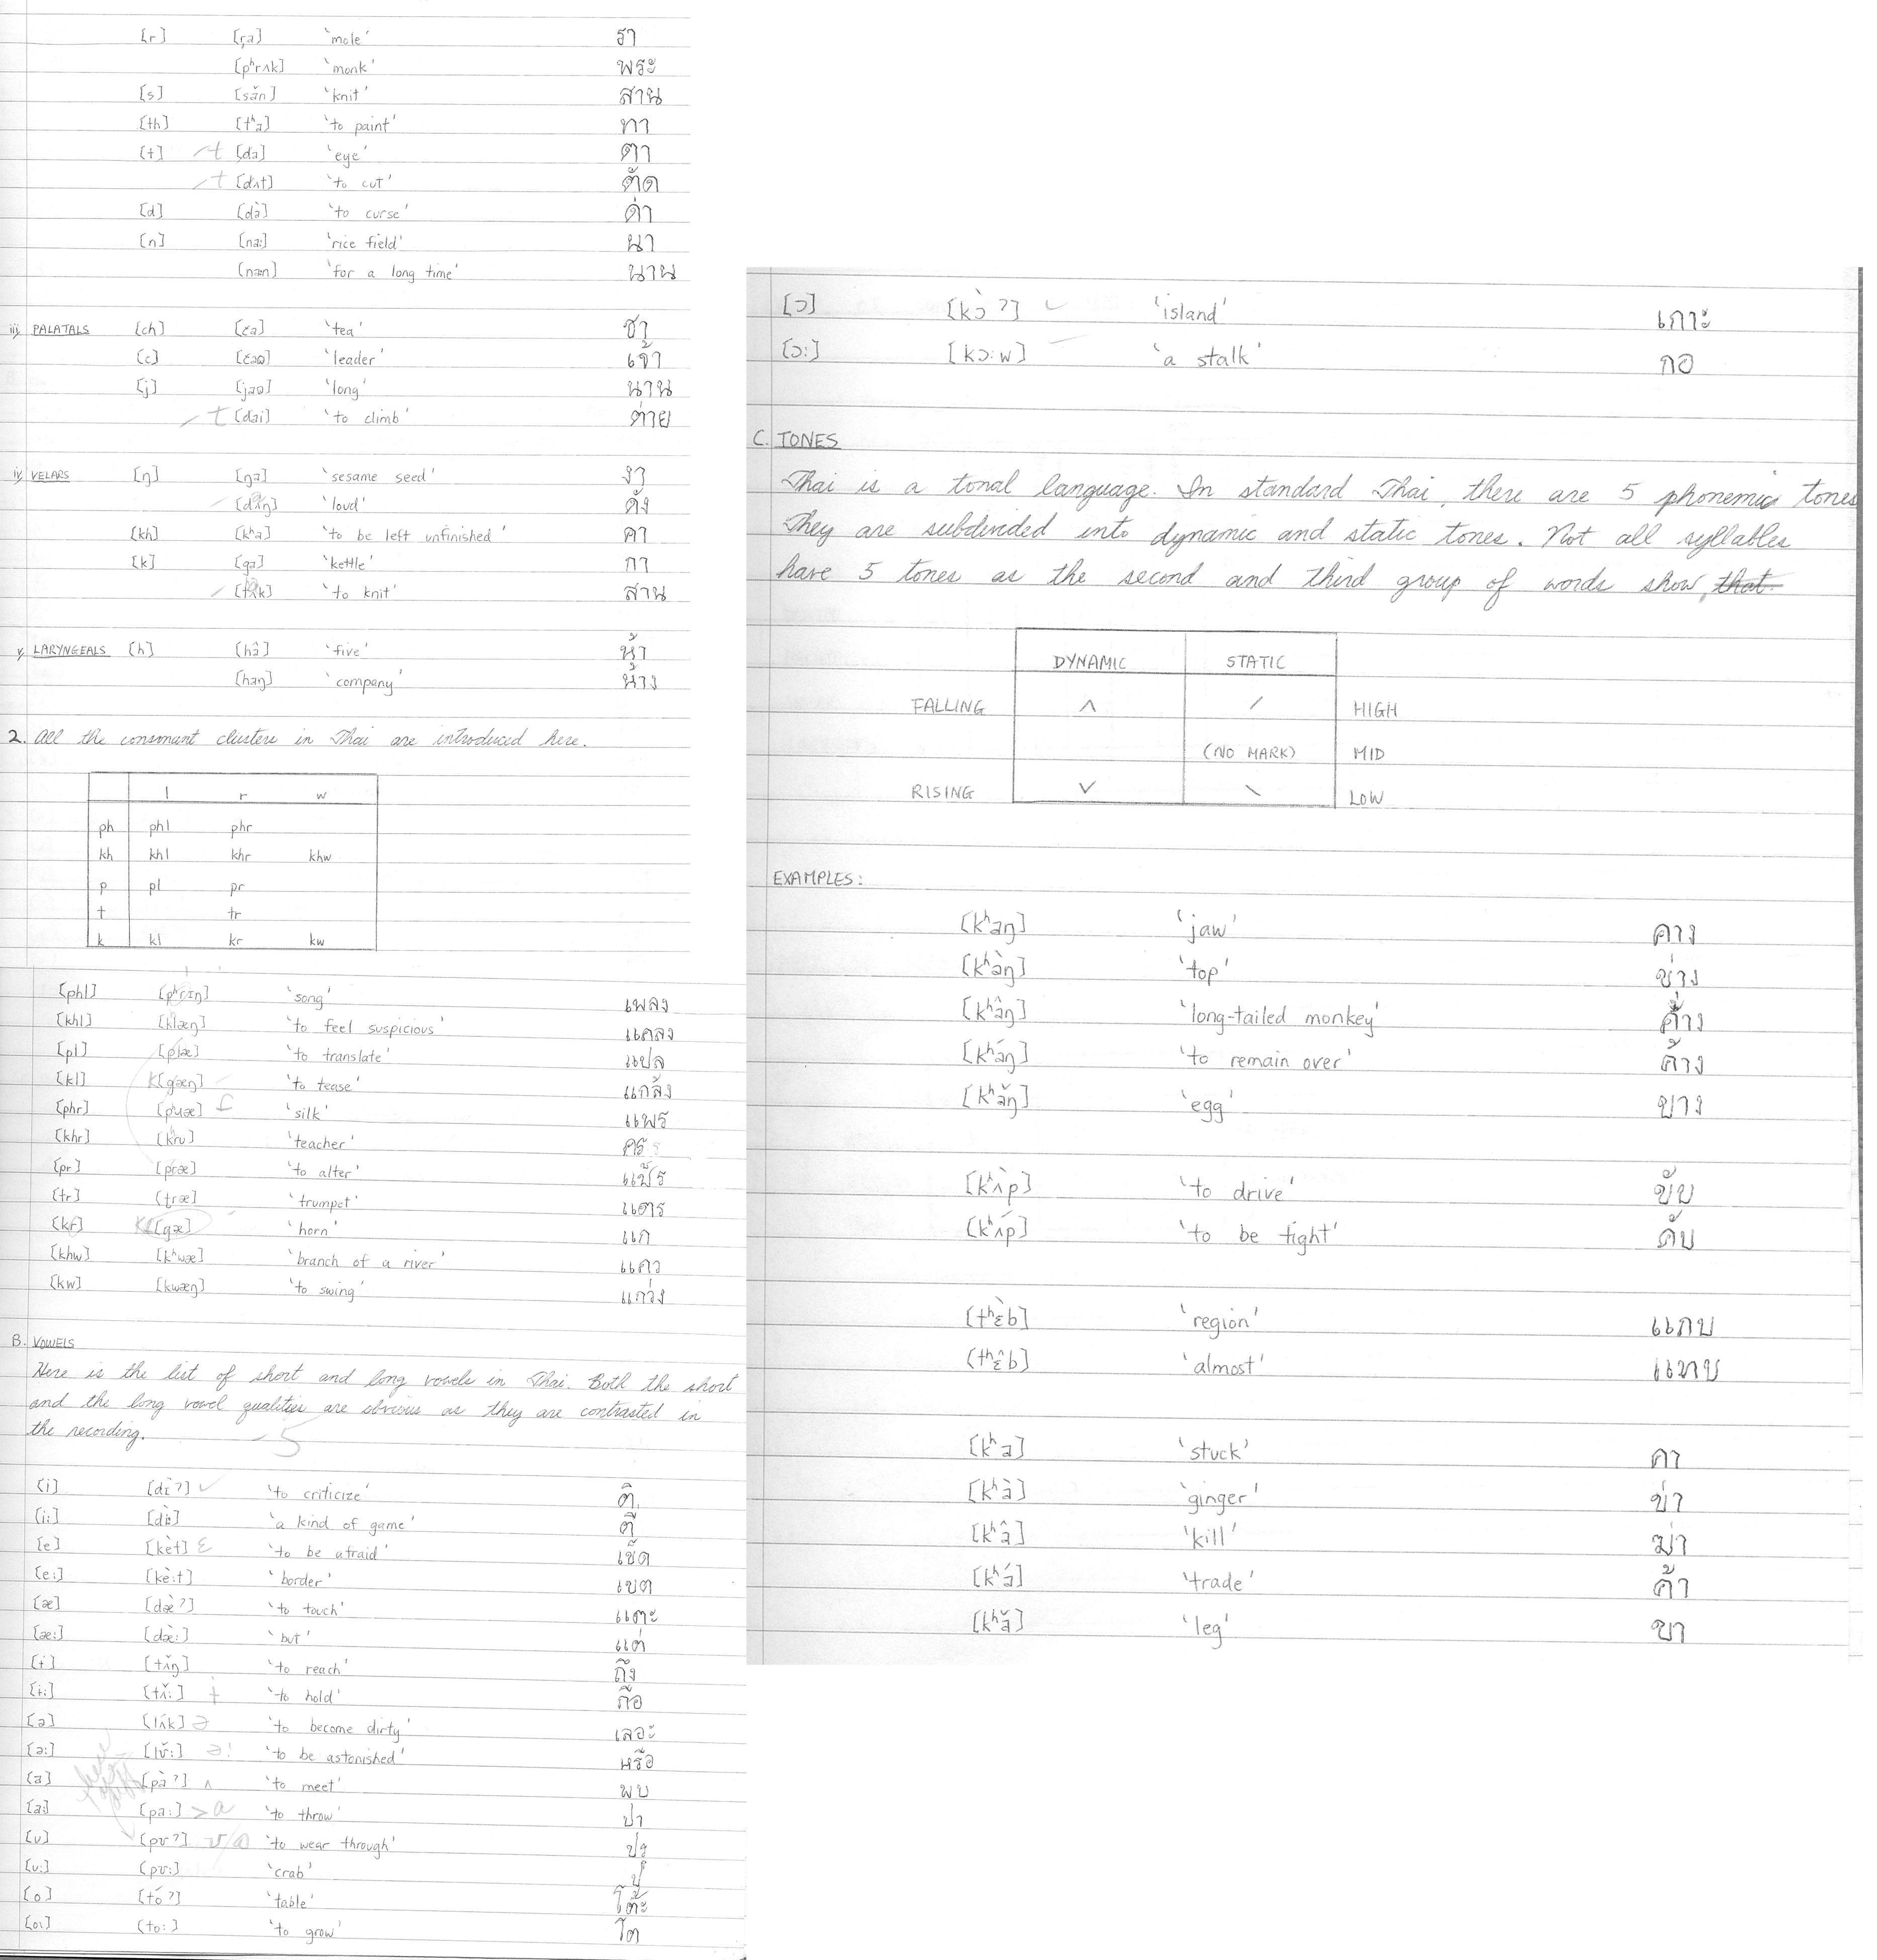 [r] [r̥a] 'mole' รา
[pʰrʌk] 'monk' พระ
[s] [sǎn] 'knit' สาน
[th] [tʰa] 'to paint' ทา
[t] t [da] 'eye' ตา
t [dʌt] 'to cut' ตัด
[d] [dà] 'to curse' ด่า
[n] [na:] 'rice field' นา
[næn] 'for a long time' นาน
iii) PALATALS [ch] [ča] 'tea' ชา
[c] 'leader' เจ้า
[j] 'long' นาน
t [dai] 'to climb' ต่าย
iv) VELARS [ŋ] [ŋa] 'sesame seed' งา
'loud' ดัง
[kh] [kʰa] 'to be left unfinished' คา
[k] [ga] 'kettle' กา
'to knit' สาน
v) LARYNGEALS [h] [hâ] 'five' ห้า
[haŋ] 'company' ห้าง
2. All the consonant clusters in Thai are introduced here.
l r w
ph phl phr
kh khl khr khw
p pl pr
t tr
k kl kr kw
[phl] 'song' เพลง
[khl] [klæŋ] 'to feel suspicious' แคลง
[pl] [plæ] 'to translate' แปล
[kl] k[gæŋ] 'to tease' แกล้ง
[phr] 'silk' แพร
[khr] 'teacher'
[pr] [præ] 'to alter'
[tr] [træ] 'trumpet' แตร
[kr] [gæ] 'horn' แก
[khw] [kʰwæ] 'branch of a river' แคว
[kw] [kwæŋ] 'to swing' แกว่ง
B. VOWELS
Here is the list of short and long vowels in Thai. Both the short
and the long vowel qualities are obvious as they are contrasted in
the recording.
[i] [dìʔ] 'to criticize' ติ
[i:] [dì:] 'a kind of game' ตี
[e] [kèt] ε 'to be afraid' เข็ด
[e:] [kè:t] 'border' เขต
[æ] [dæ̀ʔ] 'to touch' แตะ
[æ:] [dæ̀:] 'but' แต่
[ɨ] [tʌ̌ŋ] 'to reach' ถึง
[ɨ:] [tʌ̌:] ɨ 'to hold' ถือ
[ə] [lʌ́k] ə 'to become dirty' เลอะ
[ə:] ə: 'to be astonished' หรือ
[a] [pàʔ] ʌ 'to meet' พบ
[a:] [pa:] > a 'to throw' ปา
[u] [pʊʔ] 'to wear through' ปุ
[u:] [pʊ:] 'crab' ปู
[o] [tóʔ] 'table' โต๊ะ
[o:] [to:] 'to grow' โต
[ɔ] [kɔ̀ʔ] 'island' เกาะ
[ɔ:] [kɔ:w] 'a stalk' กอ
C. TONES
Thai is a tonal language. In standard Thai, there are 5 phonemic tones
They are subdivided into dynamic and static tones. Not all syllables
have 5 tones as the second and third group of words show, that
DYNAMIC STATIC
FALLING ^ / HIGH
(NO MARK) MID
RISING v \ LOW
EXAMPLES:
[kʰaŋ] 'jaw' คาง
[kʰàŋ] 'top' ข่าง
[kʰâŋ] 'long-tailed monkey' ค่าง
[kʰáŋ] 'to remain over' ค้าง
[kʰǎŋ] 'egg' ขาง
[kʰʌ̀p] 'to drive' ขับ
[kʰʌ́p] 'to be tight' คับ
[tʰɛ̀b] 'region' แถบ
[tʰɛ̂b] 'almost' แทบ
[kʰa] 'stuck' คา
[kʰà] 'ginger' ข่า
[kʰâ] 'kill' ฆ่า
[kʰá] 'trade' ค้า
[kʰǎ] 'leg' ขา